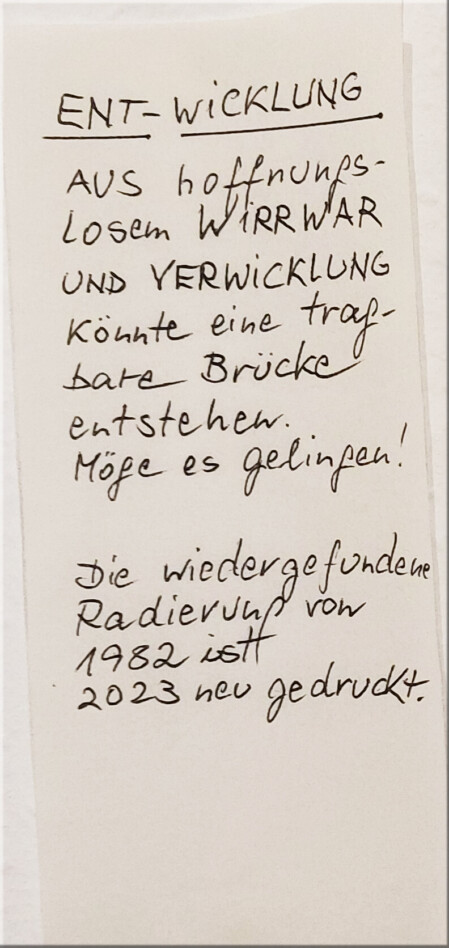 ENT-WiCKLUNG
AUS hoffnungs-
losem WiRRWAR
UND VERWiCKLUNG
könnte eine trag-
bare Brücke
entstehen.
Möge es gelingen!
Die wiedergefundene
Radierung von
1982 ist
2023 neu gedruckt.